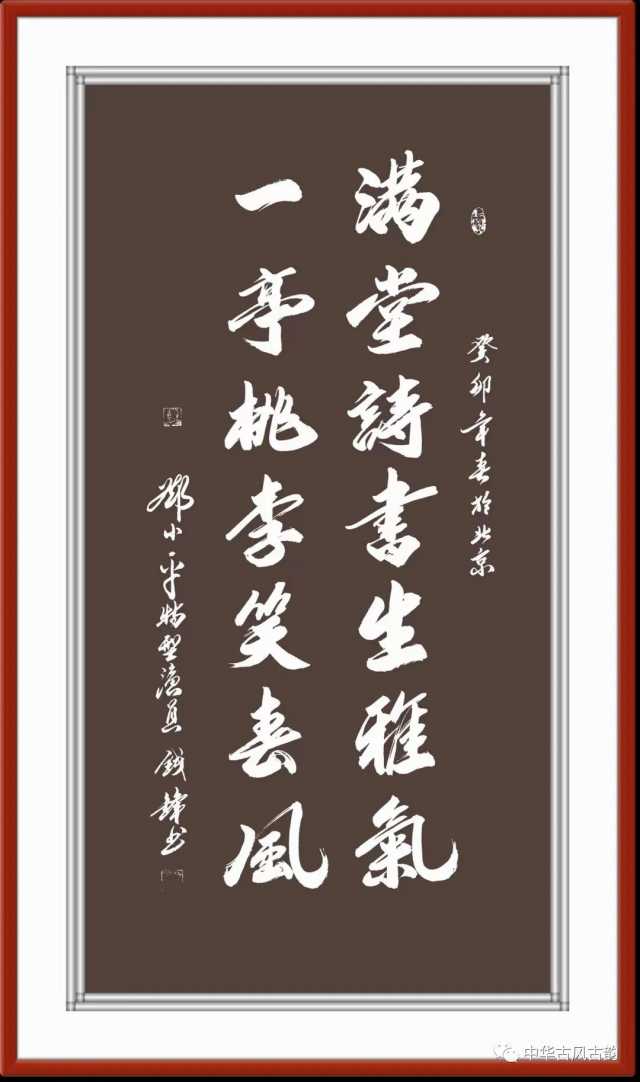 癸卯年春於北京
满堂詩書生雅氣
一亭桃李笑春風
鄧小平特型演員 钱鋒书
中华古风古韵